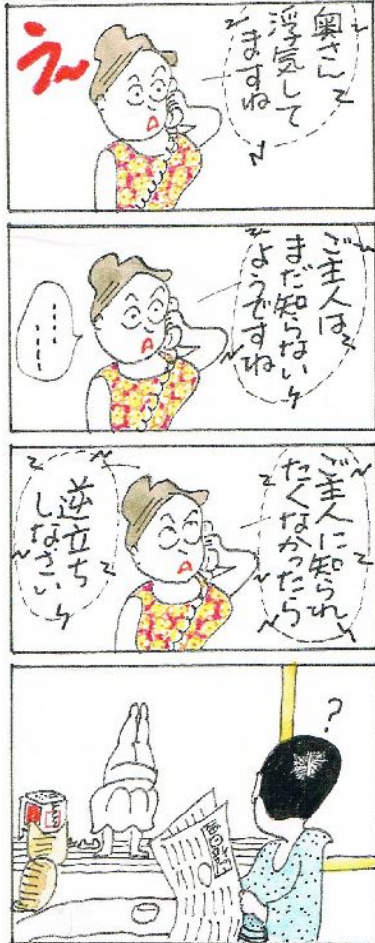 奥さん
浮気して
ますね
え〜
ご主人は
まだ知らない
ようですね
………
ご主人に知られ
たくなかったら
逆立ち
しなさい
?